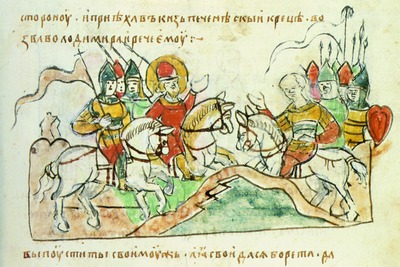 стороноу · и приѣхавъ кнзь печенѣскыи к рецѣ · во
зва володимира и рече емоу :~
выпоусти ты свои моужь · а ꙗ свои да сѧ борета · да